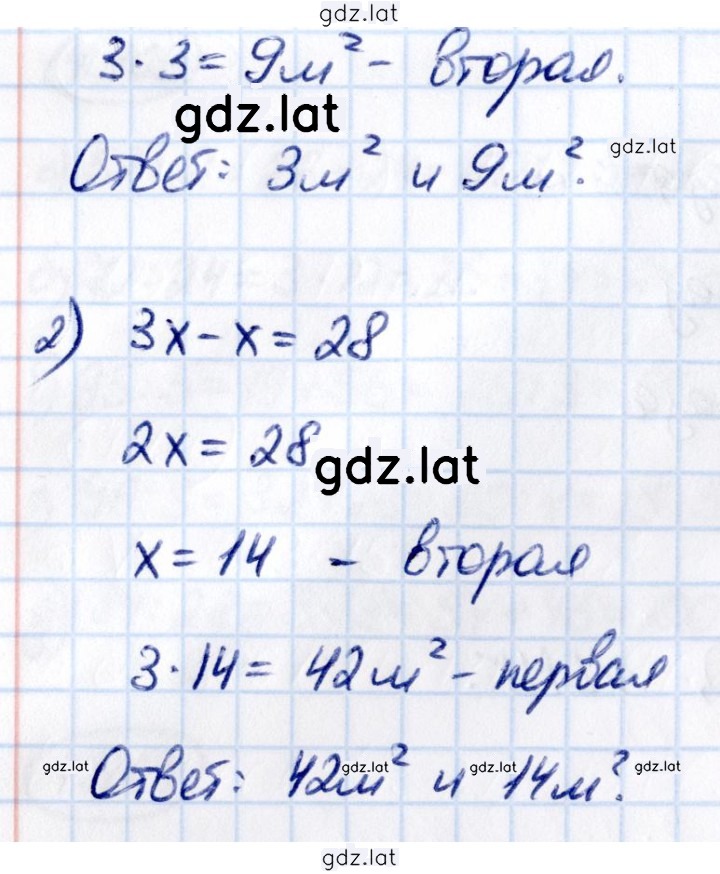 gdz.lat
3 · 3 = 9м² - вторая.
gdz.lat
Ответ: 3м² и 9м².
gdz.lat
2) 3x - x = 28
2x = 28
gdz.lat
x = 14 - вторая
3 · 14 = 42м² - первая
gdz.lat gdz.lat gdz.lat gdz.lat
Ответ: 42м² и 14м².
gdz.lat